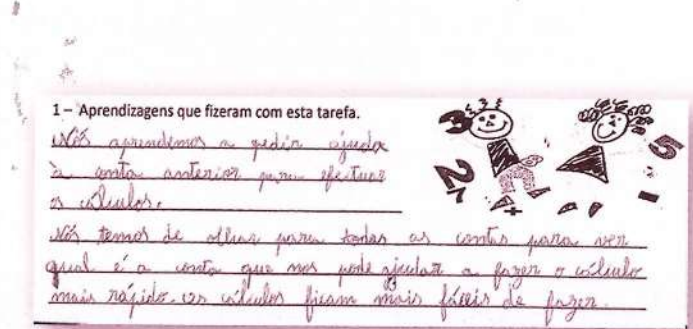 1 – Aprendizagens que fizeram com esta tarefa.
Nós aprendemos a pedir ajuda
à conta anterior para efectuar
os cálculos.
Nós temos de olhar para todas as contas para ver
qual é a conta que nos pode ajudar a fazer o cálculo
mais rápido. os cálculos ficam mais fáceis de fazer.
3
2
5